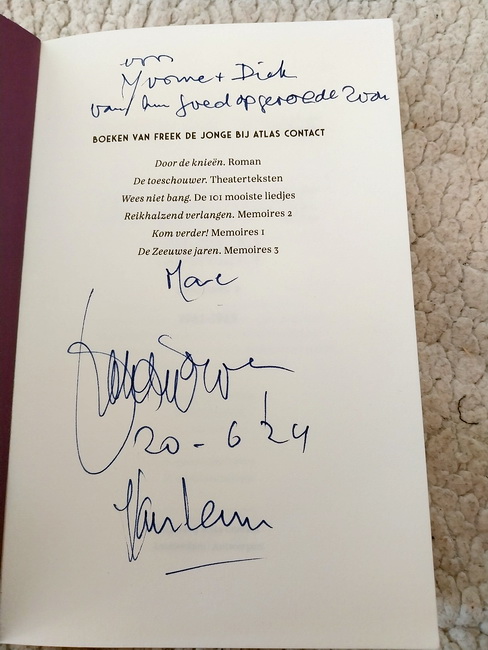 voor
Yvonne + Dick
van hun goed opgevoede zoon
BOEKEN VAN FREEK DE JONGE BIJ ATLAS CONTACT
Door de knieën. Roman
De toeschouwer. Theaterteksten
Wees niet bang. De 101 mooiste liedjes
Reikhalzend verlangen. Memoires 2
Kom verder! Memoires 1
De Zeeuwse jaren. Memoires 3
Marc
20-6'24
Haarlem